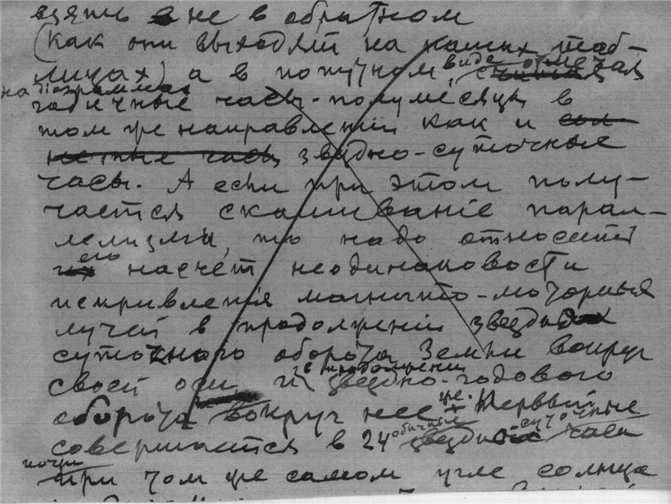 взять не в обратном
(как они выходят на наших таб-
лицах) а в попутном, виде отмечая
на диаграммах
годичные часы-полумесяцы в
том же направленіи как и
звѣздно-суточные
часы. А если при этом полу-
чается скашиваніе парал-
лелизма, то надо относить
его насчет неодинаковости
искривленія магнито-моторных
лучей в продолженіи звездно
суточного оборота Земли вокруг
своей оси и в продолжении звездно-годового
оборота вокруг нее же. Первый
совершается в 24 обычные часа
почти
при том же самом угле солнца